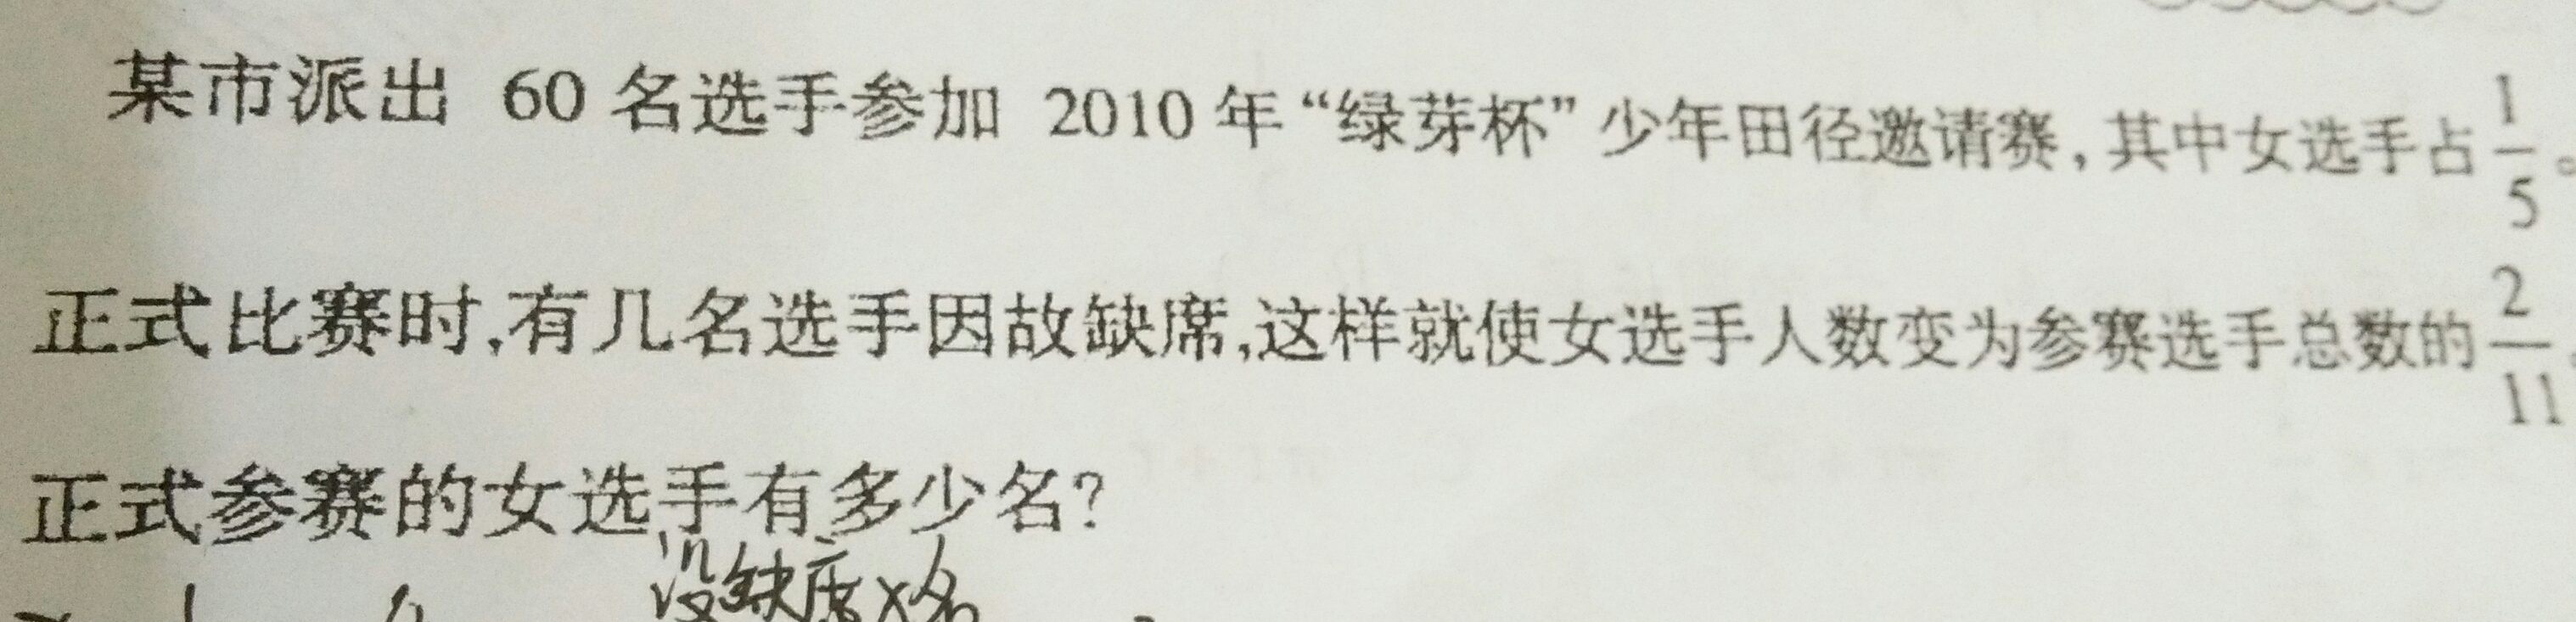 某市派出 60 名选手参加 2010 年“绿芽杯”少年田径邀请赛,其中女选手占1/5。
正式比赛时,有几名选手因故缺席,这样就使女选手人数变为参赛选手总数的2/11。
正式参赛的女选手有多少名?
没缺席x名